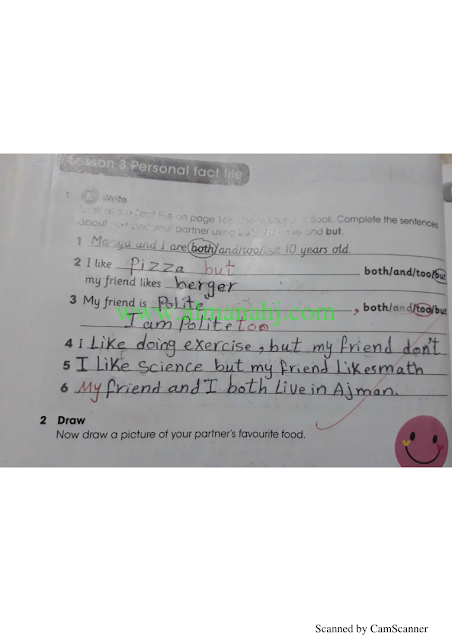 Lesson 3 Personal fact file
1 Write
Look at the fact file on page 16 Book. Complete the sentences
about and your partner using and but.
1 Mariya and I are both/and/too/but 10 years old.
2 I like Pizza but both/and/too/but
my friend likes berger
3 My friend is Polite, both/and/too/but
www.almanahj.com
I am Polite too
4 I Like doing exercise, but my friend don't
5 I Like Science but my friend likesmath
6 My friend and I both Live in Ajman.
2 Draw
Now draw a picture of your partner's favourite food.
Scanned by CamScanner